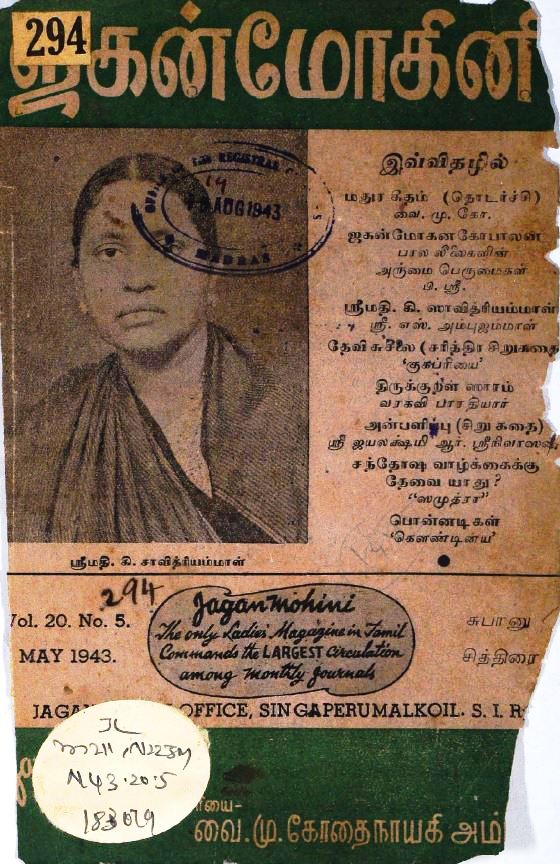 294
ஜகன்மோகினி
இவ்விதழில்
மதுர கீதம் (தொடர்ச்சி)
வை. மு. கோ.
ஜகன்மோகனகோபாலன்
பால லீலைகளின்
அருமை பெருமைகள்
பி. ஸ்ரீ.
ஸ்ரீமதி. கி. ஸாவித்ரியம்மாள்
ஸ்ரீ. எஸ். அம்புஜம்மாள்
தேவி சுசீலை (சரித்திர சிறுகதை
'குகப்ரியை'
திருக்குறள் ஸாரம்
வரகவி பாரதியார்
அன்பளிப்பு (சிறு கதை)
ஸ்ரீ ஜயலக்ஷ்மி ஆர். ஸ்ரீநிவாஸன்
சந்தோஷ வாழ்க்கைக்கு
தேவை யாது?
"ஸமுத்ரா"
பொன்னடிகள்
'கௌண்டின்ய'
REGISTRAR
14
AUG 1943
MADRAS
ஸ்ரீமதி. கி. சாவித்ரியம்மாள்
294
Vol. 20. No. 5.
MAY 1943.
Jaganmohini
The only Ladies' Magazine in Tamil
Commands the LARGEST Circulation
among Monthly Journals
சுபானு
சித்திரை
JAGAN OFFICE, SINGAPERUMALKOIL. S. I. R
JL
N43.20.5
183029
யை-
வை.மு.கோதைநாயகி அம்